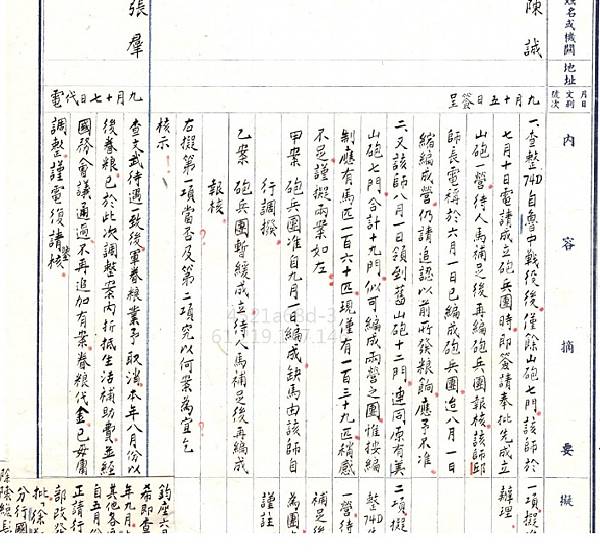 姓名或機關
地址
月日
文別
號次
內容摘要
擬
陳誠
九月十五日簽呈
一、查整74D自魯中戰役後僅餘山砲七門該師於
七月十日電請成立砲兵團時即簽請奉批先成立
山砲一營待人馬補足後再編砲兵團報核該師邱
師長電稱於六月一日已編成砲兵團迨八月一日
縮編成營仍請追認以前所發糧餉應予不准
二、又該師八月一日領到舊山砲十二門連同原有美
山砲七門合計十九門似可編成兩營之團惟按編
制應有馬匹一百六十匹現僅有一百三十九匹稍感
不足謹擬兩案如左
甲案 砲兵團准自九月一日編成缺馬由該師自
行調撥
乙案 砲兵團暫緩成立待人馬補足後再編成
報核
右擬第一項當否及第二項究以何案為宜乞
核示
一項擬
辦理
二項擬
整74D
一營待
補足後
為團
謹註
張羣
九月十七日代電
查文武待遇一致後軍眷糧業予取消本年八月份以
後眷糧已於此次調整案內折抵生活補助費並經
國務會議通過不再追加有案眷糧代金已毋庸
調整謹電復請鑒核
鈞座六
希即查
年九月
其他各
自五月份
正請行
部改發
批「徐
分行國
徐陳總長